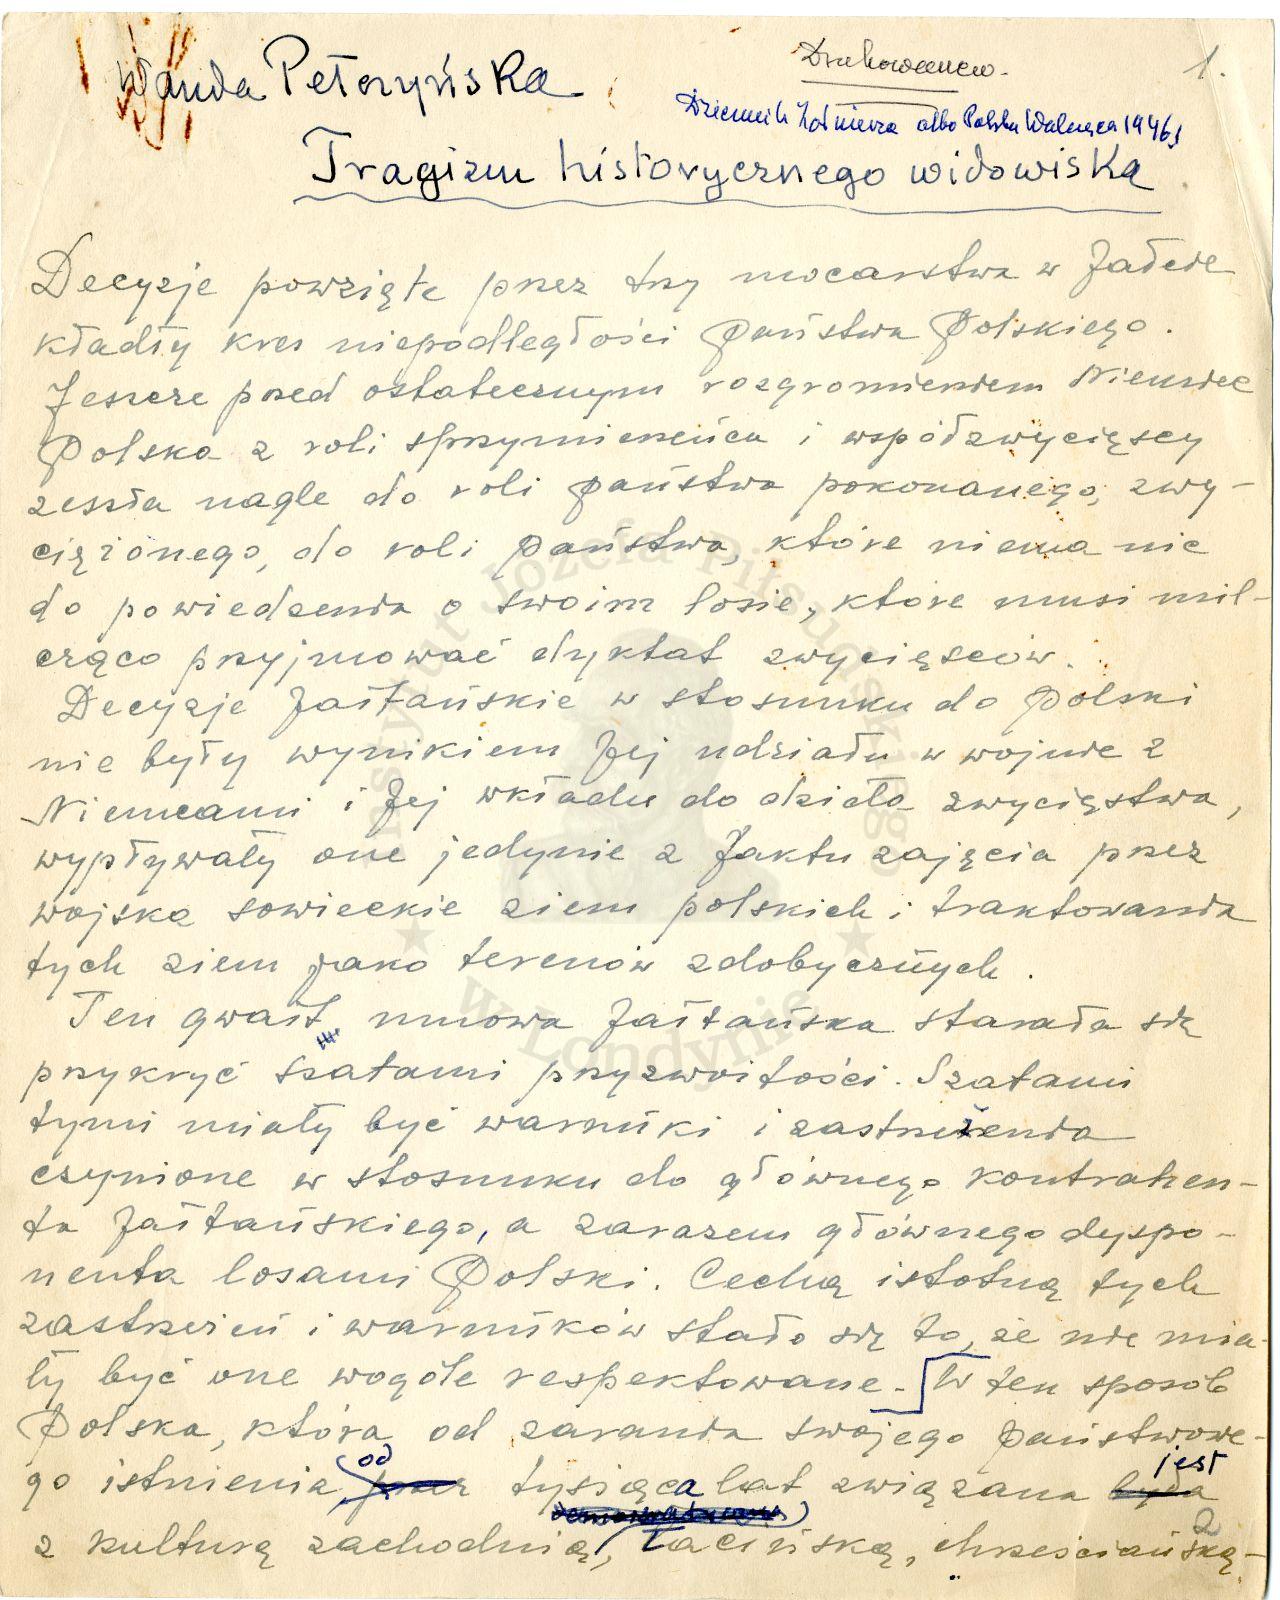 Wanda Pełczyńska
Drukowane.
1.
Dziennik Żołnierza albo Polska Walcząca 1946
Tragizm historycznego widowiska
Decyzje powzięte przez trzy mocarstwa w Jałcie
kładły kres niepodległości Państwa Polskiego.
Jeszcze przed ostatecznym rozgromieniem Niemiec
Polska z roli sprzymierzeńca i współzwycięscy
zeszła nagle do roli państwa pokonanego, zwy-
ciężonego, do roli państwa, które niema nic
do powiedzenia o swoim losie, które musi mil-
cząco przyjmować dyktat zwycięsców.
Decyzje Jałtańskie w stosunku do Polski
nie były wynikiem Jej udziału w wojnie z
Niemcami i Jej wkładu do dzieła zwycięstwa,
wypływały one jedynie z faktu zajęcia przez
wojska sowieckie ziem polskich i traktowania
tych ziem jako terenów zdobycznych.
Ten gwałt umowa Jałtańska starała się
przykryć szatami przyzwoitości. Szatami
tymi miały być warunki i zastrzeżenia
czynione w stosunku do głównego kontrahen-
ta Jałtańskiego, a zarazem głównego dyspo-
nenta losami Polski. Cechą istotną tych
zastrzeżeń i warunków stało się to, że nie mia-
ły być one wogóle respektowane. W ten sposób
Polska, która od zarania swojego państwowe-
go istnienia od przez tysiąca lat związana była jest
z kulturą zachodnią, łacińską, chrześciańską-
2
Instytut Józefa Piłsudskiego
w Londynie